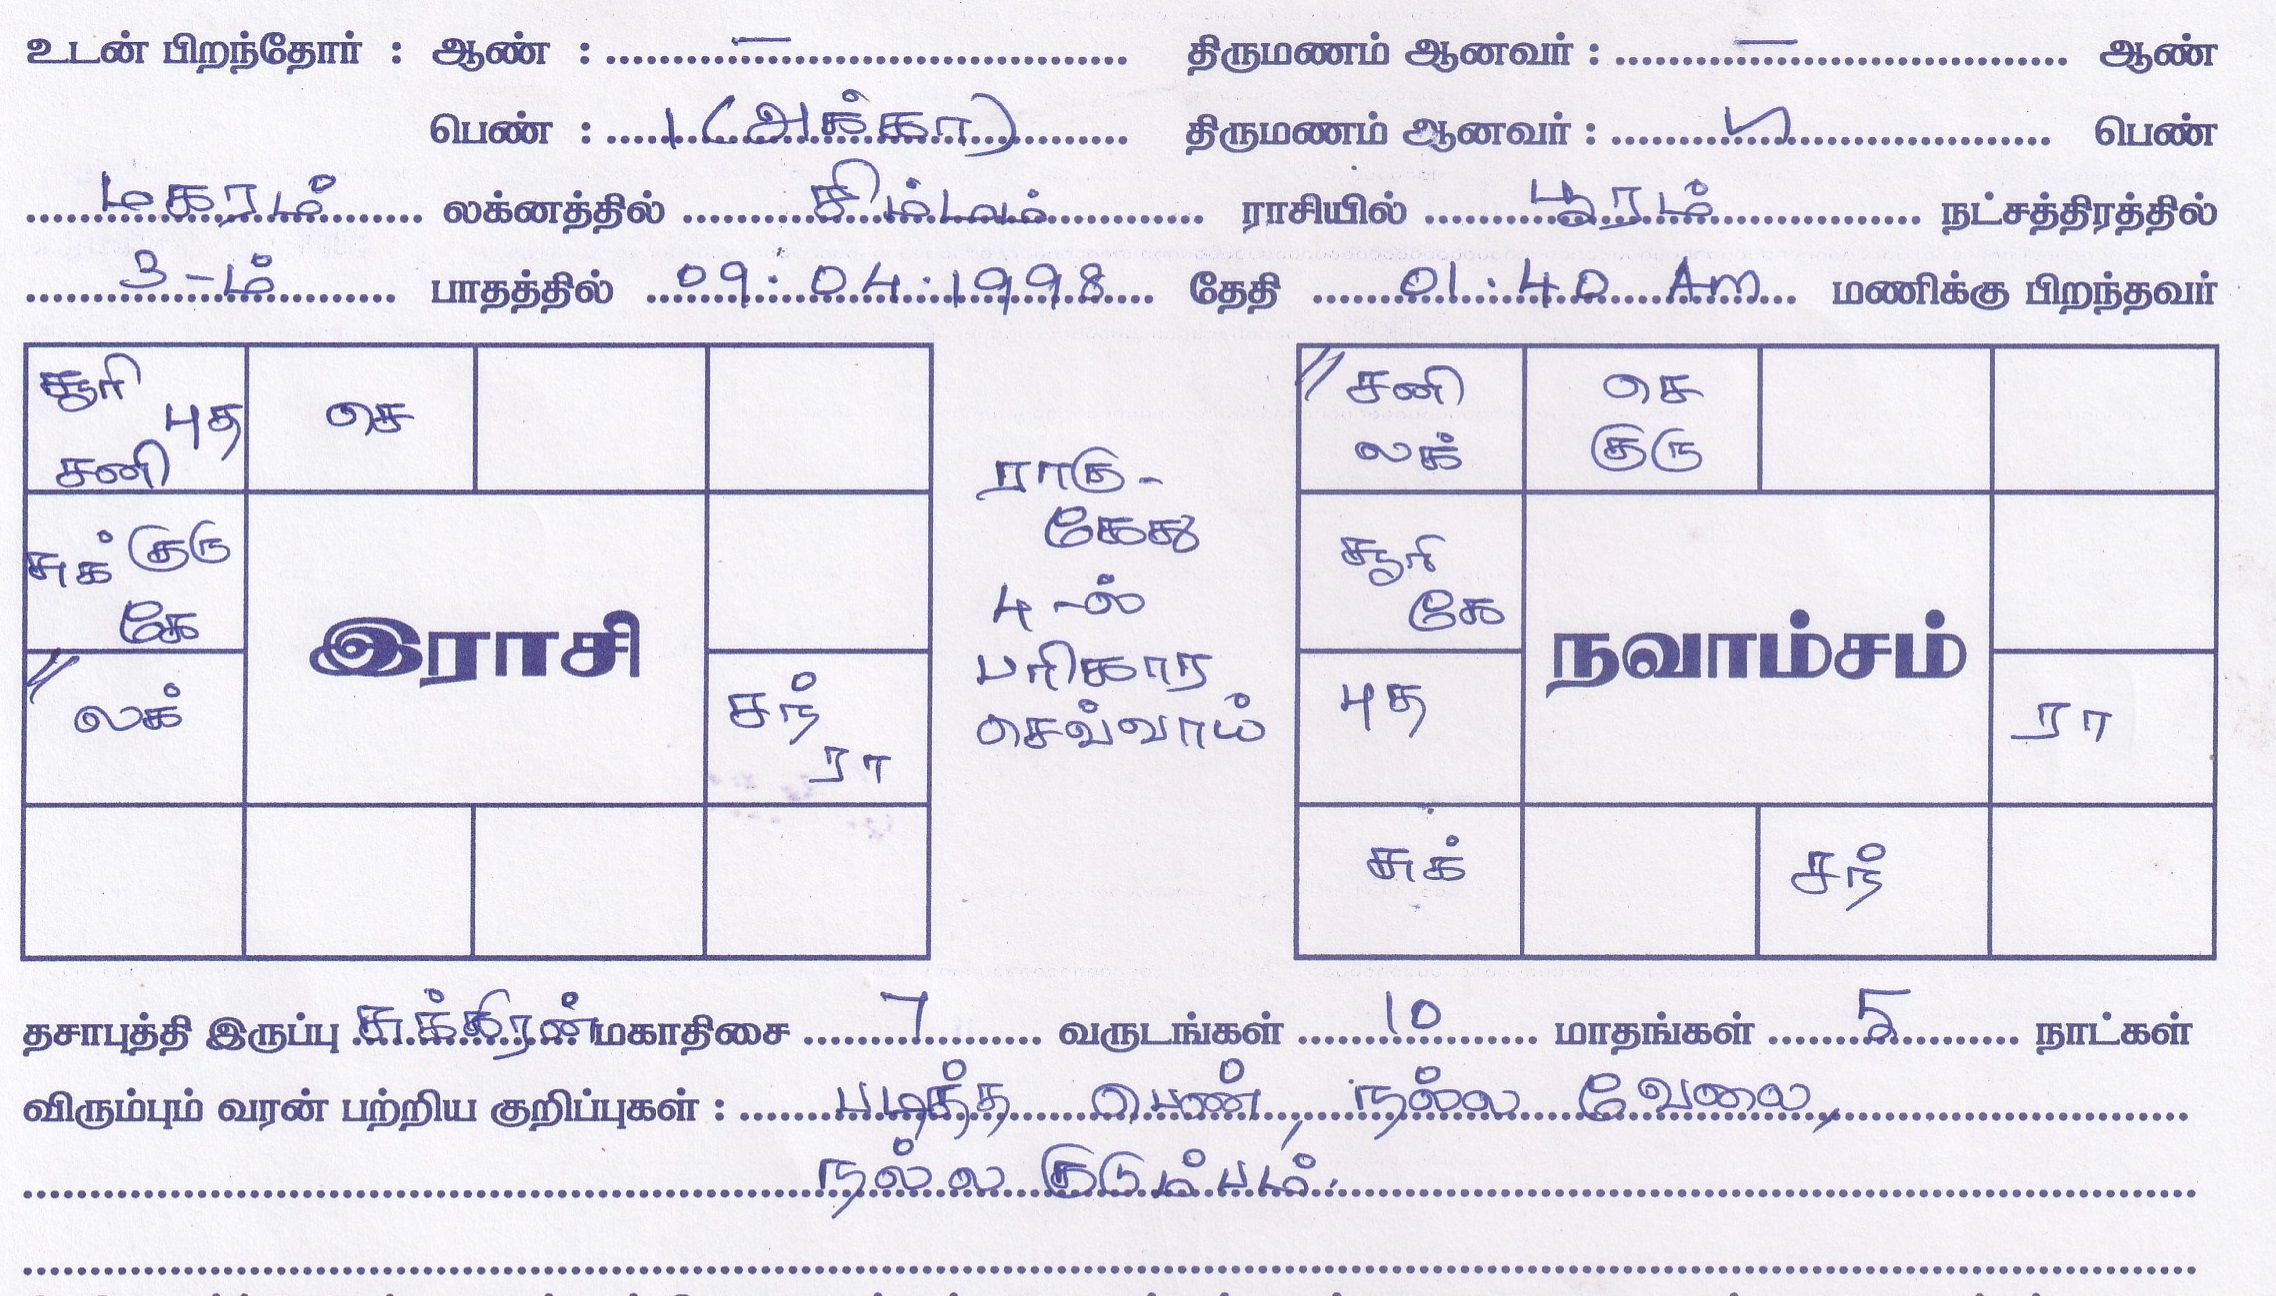 உடன் பிறந்தோர் : ஆண் : ..... – ..... திருமணம் ஆனவர் : ..... – ..... ஆண்
பெண் : ..... 1 (அக்கா) ..... திருமணம் ஆனவர் : ..... பெண்
மகரம் லக்னத்தில் சிம்மம் ராசியில் பூரம் நட்சத்திரத்தில்
3-ம் பாதத்தில் 09.04.1998 தேதி 01.40 Am மணிக்கு பிறந்தவர்
சூரி புத சனி
செ
சுக் குரு கே
இராசி
லக்
சந் ரா
ராகு-
கேது
4-ல்
பரிகார
செவ்வாய்
சனி லக்
செ குரு
சூரி கே
நவாம்சம்
புத
ரா
சுக்
சந்
தசாபுத்தி இருப்பு சுக்கிரன் மகாதிசை 7 வருடங்கள் 10 மாதங்கள் 5 நாட்கள்
விரும்பும் வரன் பற்றிய குறிப்புகள் : படித்த பெண், நல்ல வேலை,
நல்ல குடும்பம்.